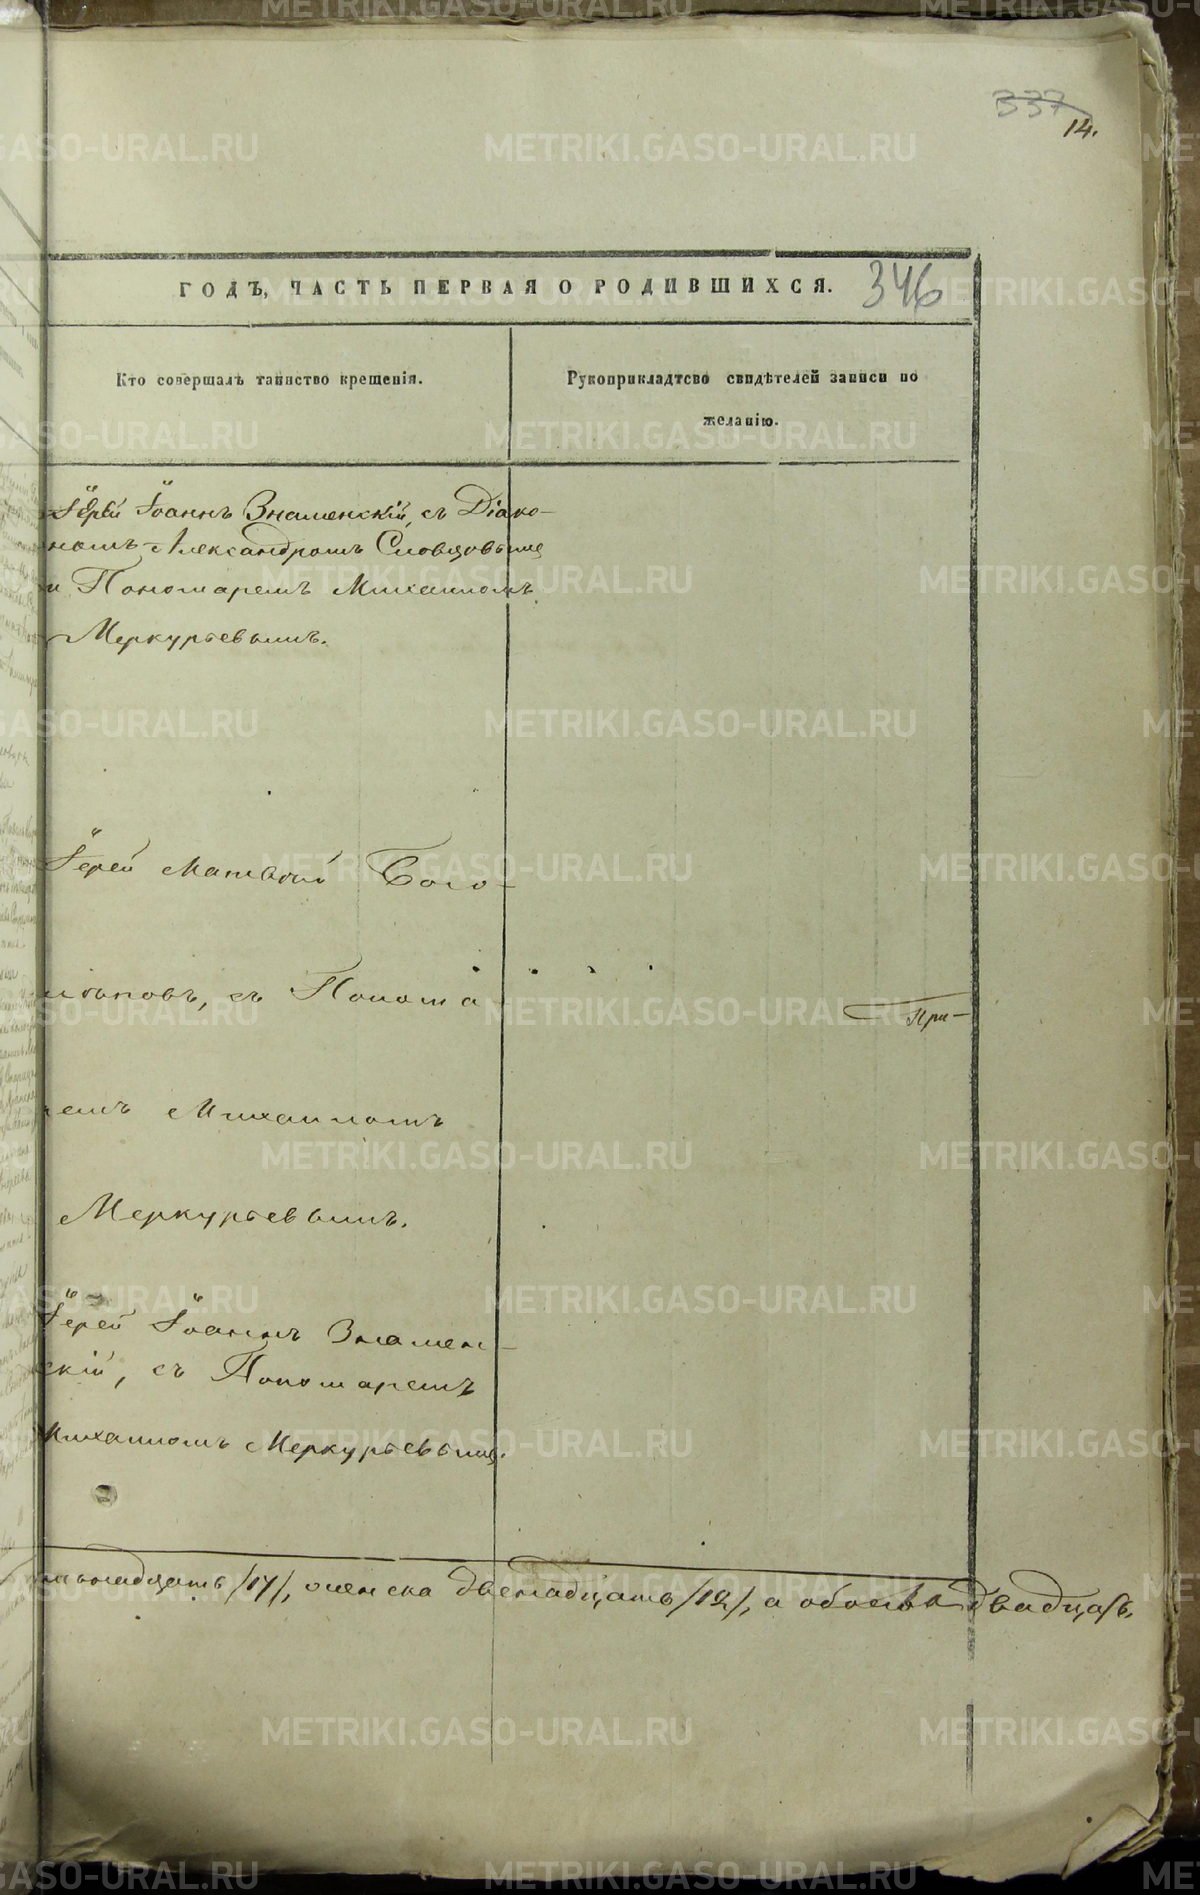 337
14.
ГОДЪ, ЧАСТЬ ПЕРВАЯ О РОДИВШИХСЯ.
346
Кто совершалъ таинство крещенія.
Рукоприкладтсво свидѣтелей записи по
желанію.
Іерей Іоаннъ Знаменскій, съ Діако-
номъ Александромъ Словцовымъ
и Пономаремъ Михаиломъ
Меркурьевымъ.
Іерей Матвѣй Бого-
съ Понома
ремъ Михаиломъ
Меркурьевымъ.
Іерей Іоаннъ Знамен-
скій, съ Пономаремъ
Михаиломъ Меркурьевымъ.
При-
/17/, женска двенадцать /12/, а обоего двадцать
METRIKI.GASO-URAL.RU